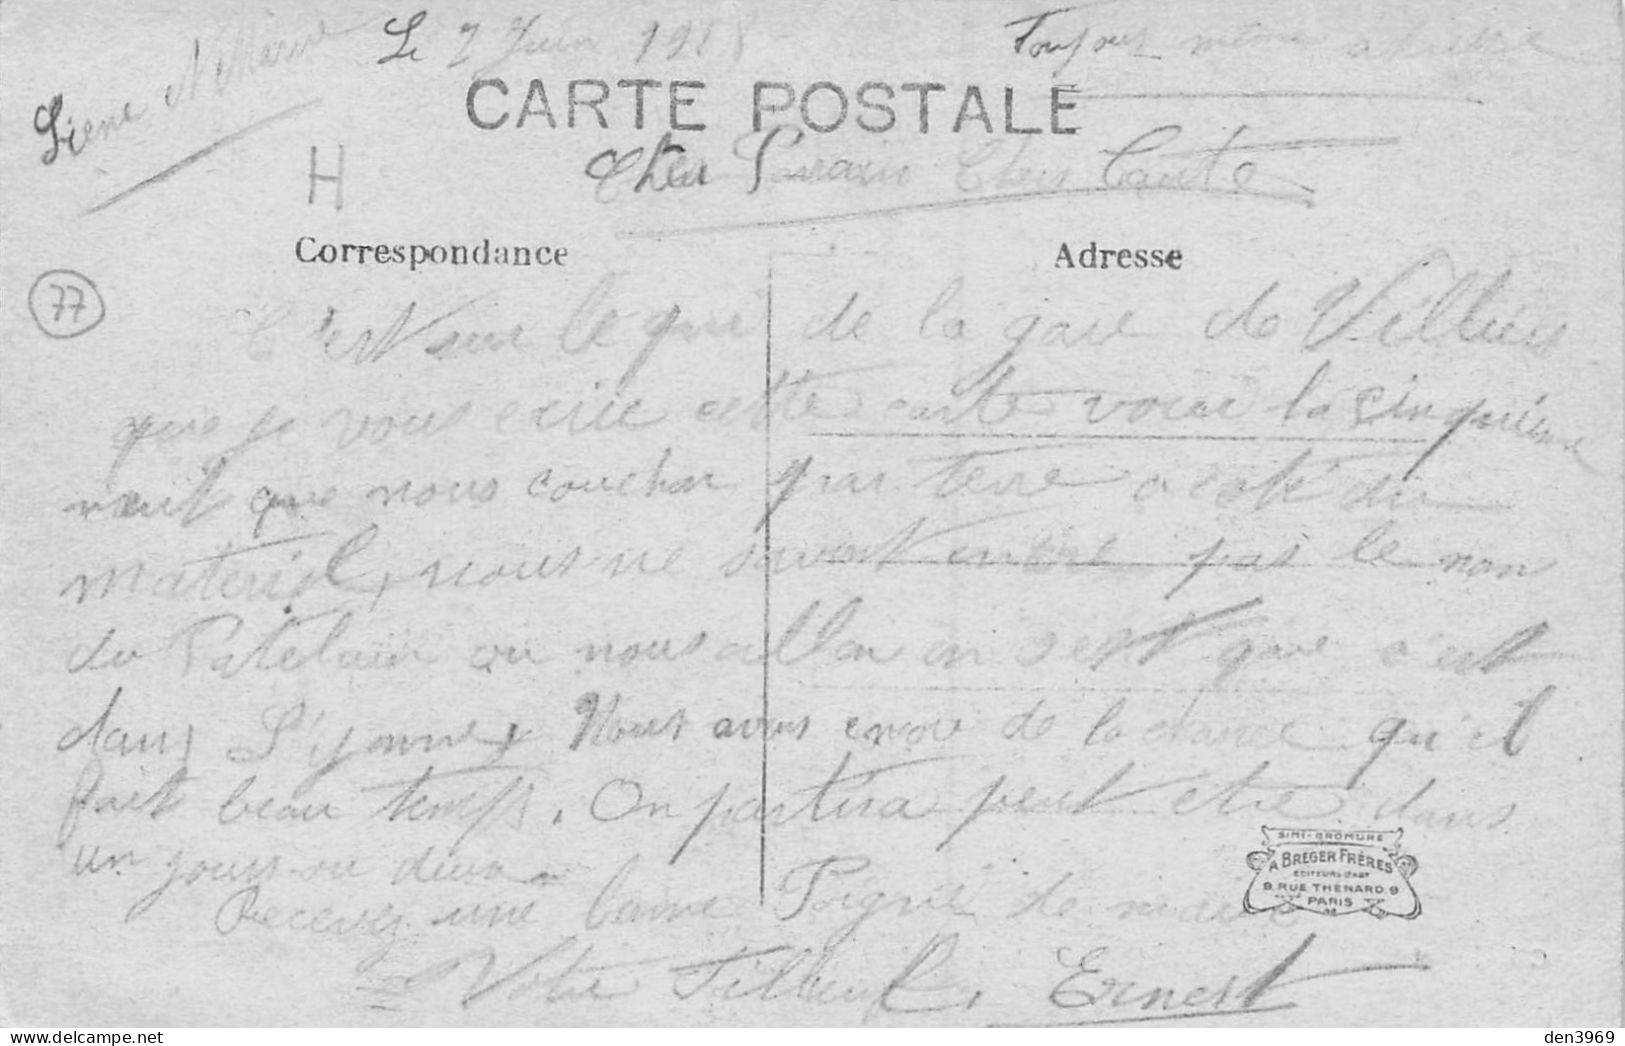 Le 7 Juin 1918
Toujours même adresse
Siene et Marne
CARTE POSTALE
Cher Parain Cher Tante
H
Correspondance
Adresse
77
C'est sur le qui de la gare de Villiers
que je vous ecrie cette carte voici la cinquième
nuit que nous couchon par terre a coté du
materiel, nous ne savont encore pas le non
du Patelain ou nous allon on sest que c'est
dans L'yonne, Nous avons encore de la chance qu'il
fait beau temps. On partira peut etre dans
un jours ou deux
Recevez une bonne Poigné de main
Votre Filleul, Ernest
SIMI-BROMURE
A BREGER FRÈRES
EDITEURS D'ART
9 RUE THENARD 9
PARIS
den3969